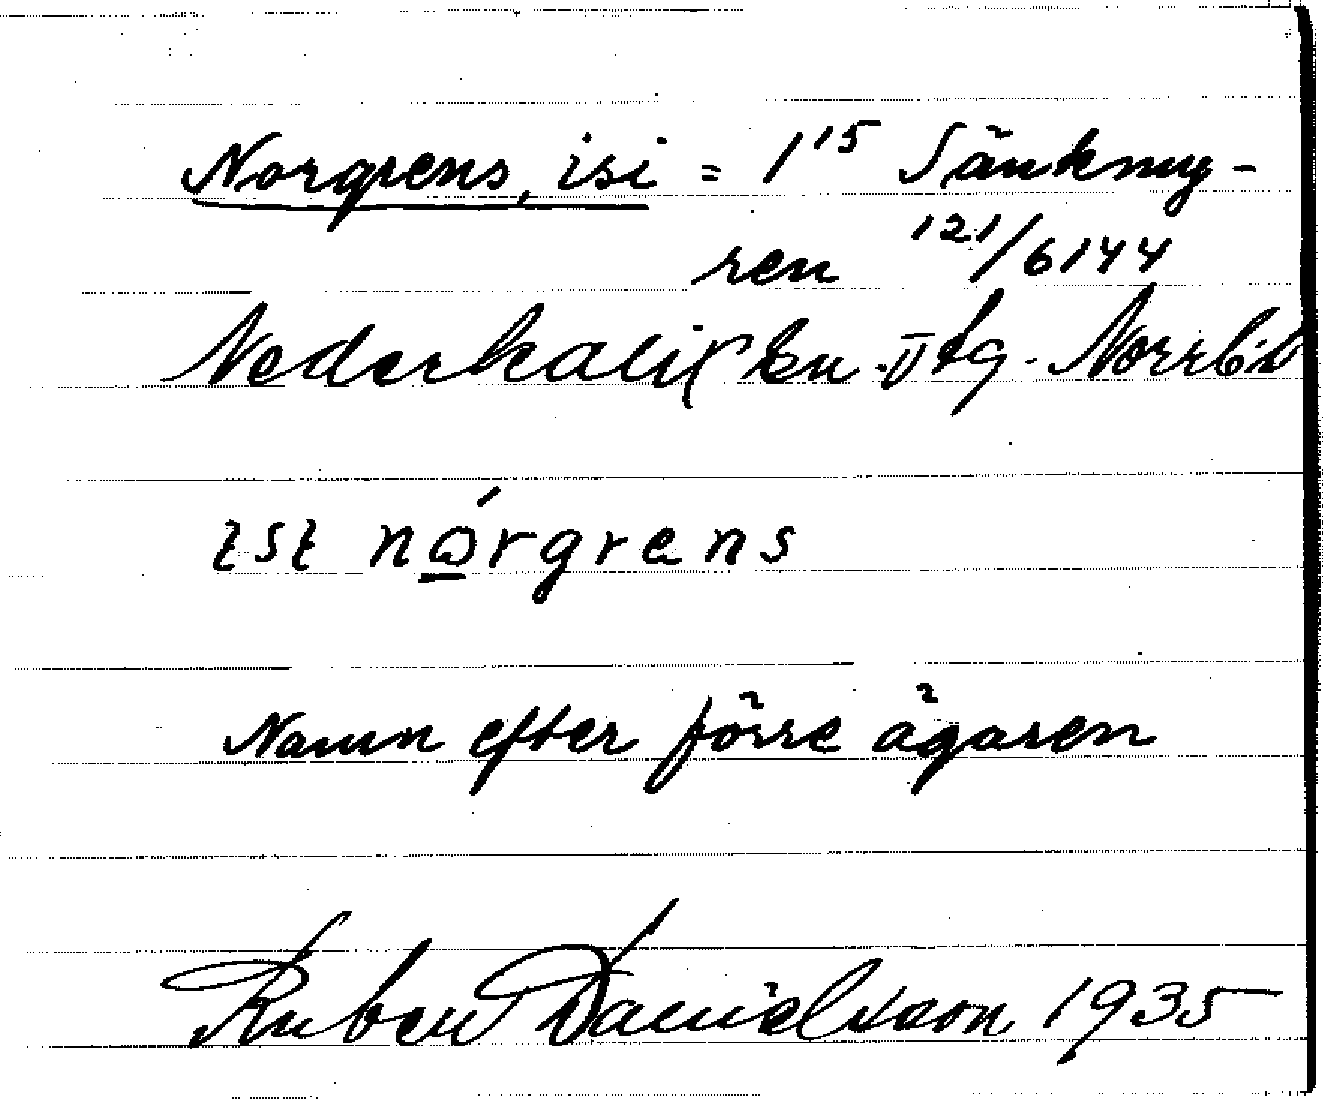 Norgrens, isi = 1¹⁵ Sänkmy-
ren ¹²¹/6144
Nederkalix sn. II tg. Norrb.l.
ɩsɩ nǫ́rgrens
Namn efter förre ägaren
Ruben Danielsson 1935